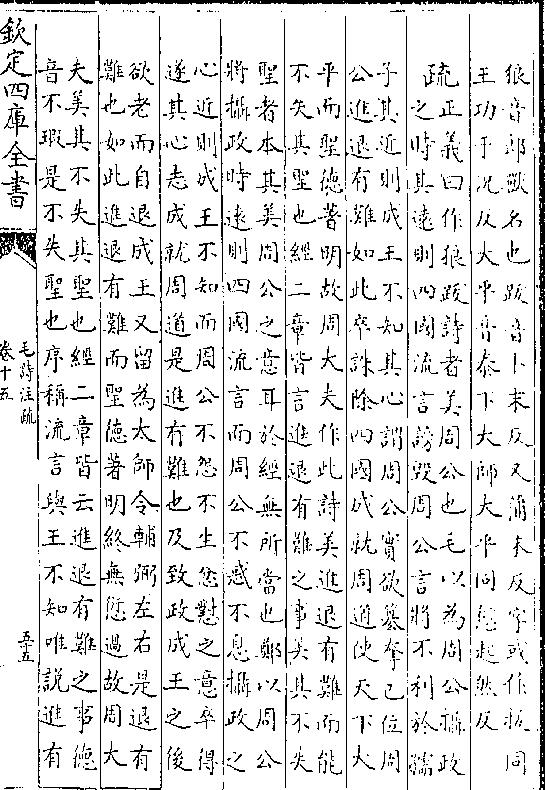 狼音郎獸名也跋音卜末反又蒲末反字或作拔同
王功于況反大平音泰下大師大平同愆起然反
疏
正義曰作狼跋詩者美周公也毛以為周公攝政
之時其遠則四國流言謗毀周公言將不利於孺
子其近則成王不知其心謂周公實欲簒奪已位周
公進退有難如此卒誅除四國成就周道使天下大
平而聖德著明故周大夫作此詩美進退有難而能
不失其聖也經二章皆言進退有難之事美其不失
聖者本其美周公之意耳於經無所當也鄭以周公
將攝政時遠則四國流言而周公不惑不息攝政之
心近則成王不知而周公不怨不生忿懟之意卒得
遂其心志成就周道是進有難也及致政成王之後
欲老而自退成王又留為太師令輔弼左右是退有
難也如此進退有難而聖德著明終無愆過故周大
夫美其不失其聖也經二章皆云進退有難之事德
音不瑕是不失聖也序稱流言與王不知唯說進有
欽定四庫全書
毛詩注疏
卷十五
五十五